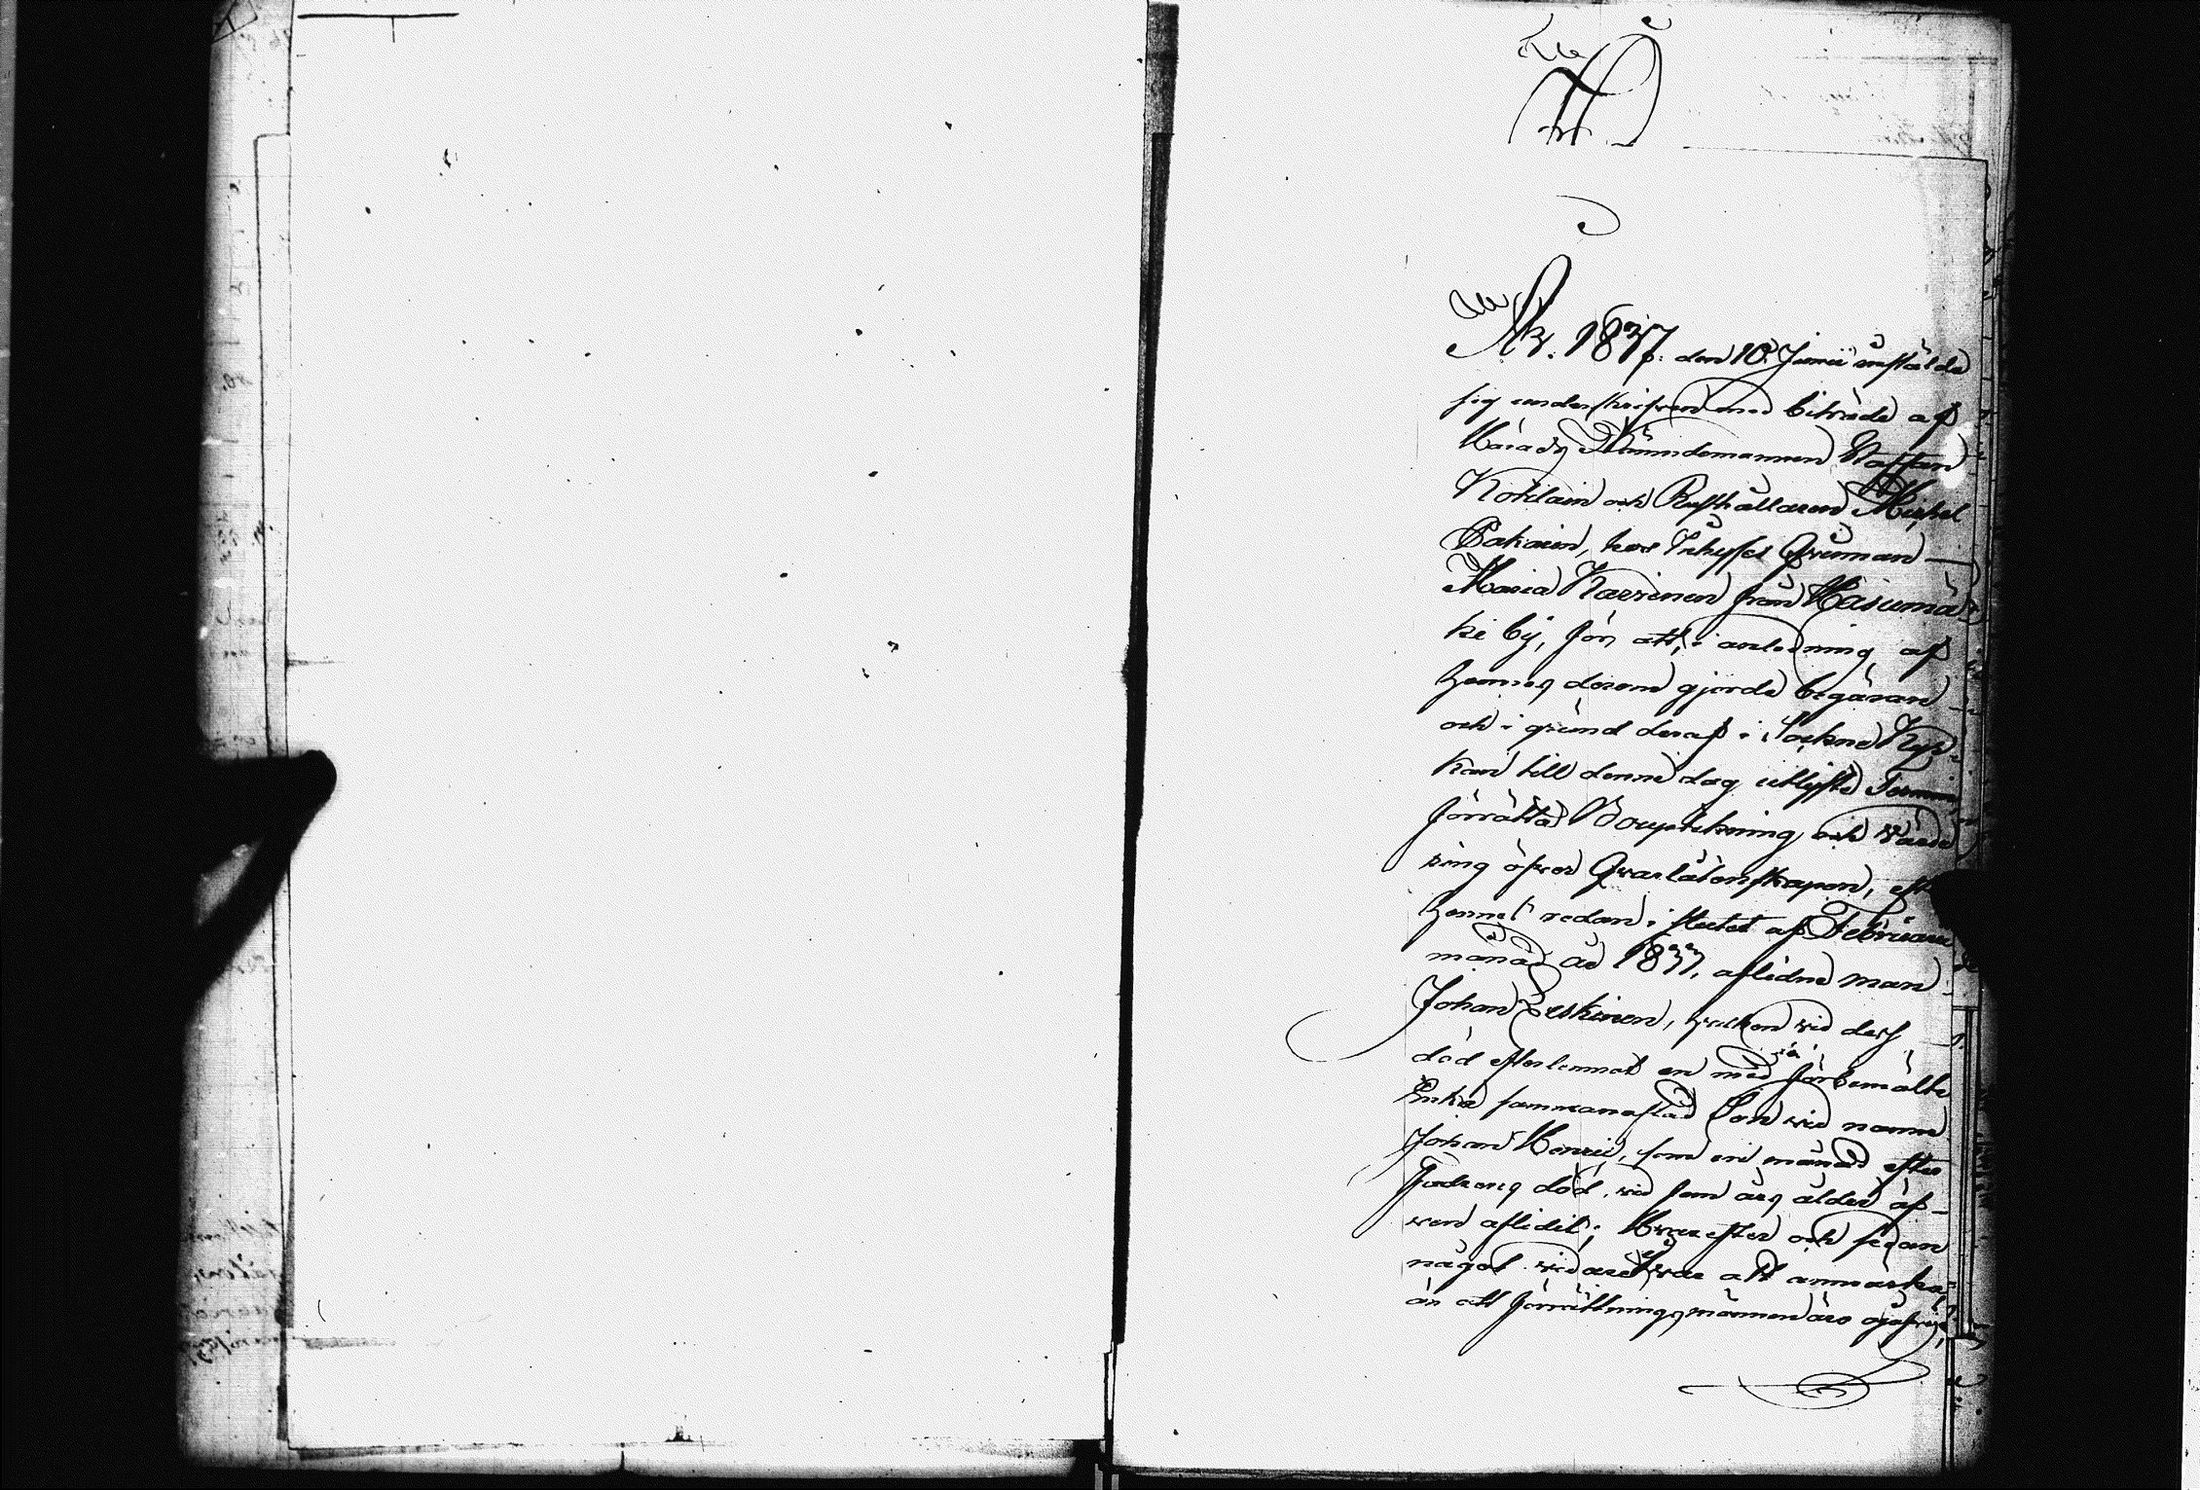 År 1837. den 10 Junii instälde
sig underskrifven med biträde af
Härads Nämndemannen Staffan
och Rusthållaren Mickel
Pakain, hos Inhyses Qvinnan
Maria Karvinen från Hasumä
ki by, för att, i anledning af
hennes derom gjorde begäran
och i grund deraf i Sockne Kyr-
kan till denne dag utlyste Termin
förrätta Bouptekning och värde
ring öfver Qvarlåtenskapen, eft
hennes redan i slutet af Februarii
månad år 1833, aflidne man
Johan Leskinen, hvilken vid dess
död efterlemnat en med förbemälte
Enka sammanaflad Son vid namn
Johan Henric, som en månad efter
Fadrens död, vid fem års ålder äf-
ven aflidit; Hvarefter och sedan
något vidare ej var att anmärka,
än att förrättningsmännen äro ojäfvige,